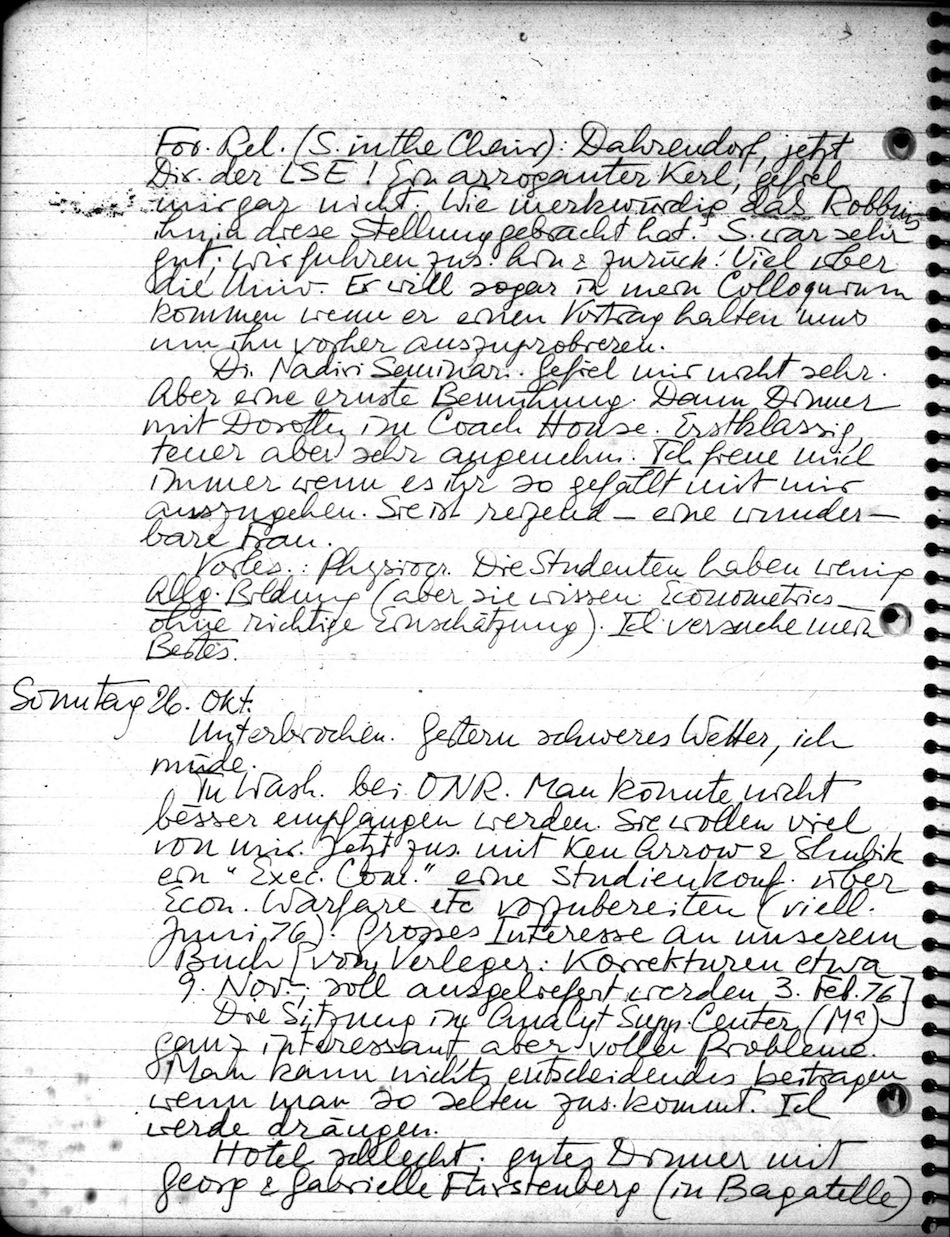 For. Rel. (S. in the Chair): Dahrendorf, jetzt
Dir. der LSE! Ein arroganter Kerl, gefiel
mir gar nicht. Wie merkwürdig das Robbins
ihn in diese Stellung gebracht hat. S. war sehr
gut; wir fuhren zus. hin & zurück! Viel über
die Univ. Er will sogar in mein Colloquium
kommen wenn er einen Vortrag halten muss
um ihn vorher auszuprobieren.
Di. Nadiri Seminar. Gefiel mir nicht sehr.
Aber eine ernste Bemühung. Dann Dinner
mit Dorothy im Coach House. Erstklassig,
teuer aber sehr angenehm. Ich freue mich
immer wenn es ihr so gefällt mit mir
auszugehen. Sie ist reizend – eine wunder-
bare Frau.
Vorles.: Physiocr. Die Studenten haben wenig
Allg. Bildung (aber sie wissen Econometrics –
ohne richtige Einschätzung). Ich versuche mein
Bestes.
Sonntag 26. Okt.
Unterbrochen. Gestern schweres Wetter, ich
müde.
In Wash. bei ONR. Man konnte nicht
besser empfangen werden. Sie wollen viel
von mir. Jetzt zus. mit Ken Arrow & Shubik
ein "Exec. Com." eine Studienkonf. über
Econ. Warfare etc vorzubereiten (viell.
Juni 76). Grosses Interesse an unserem
Buch [vom Verleger: Korrekturen etwa
9. Nov.; soll ausgeliefert werden 3. Feb. 76]
Die Sitzung im Analyt Supp. Center (Ma)
ganz interessant aber voller Probleme.
Man kann nichts entscheidendes beitragen
wenn man so selten zus. kommt. Ich
werde drängen.
Hotel schlecht; gutes Dinner mit
Georg & Gabrielle Fürstenberg (in Bagatelle)